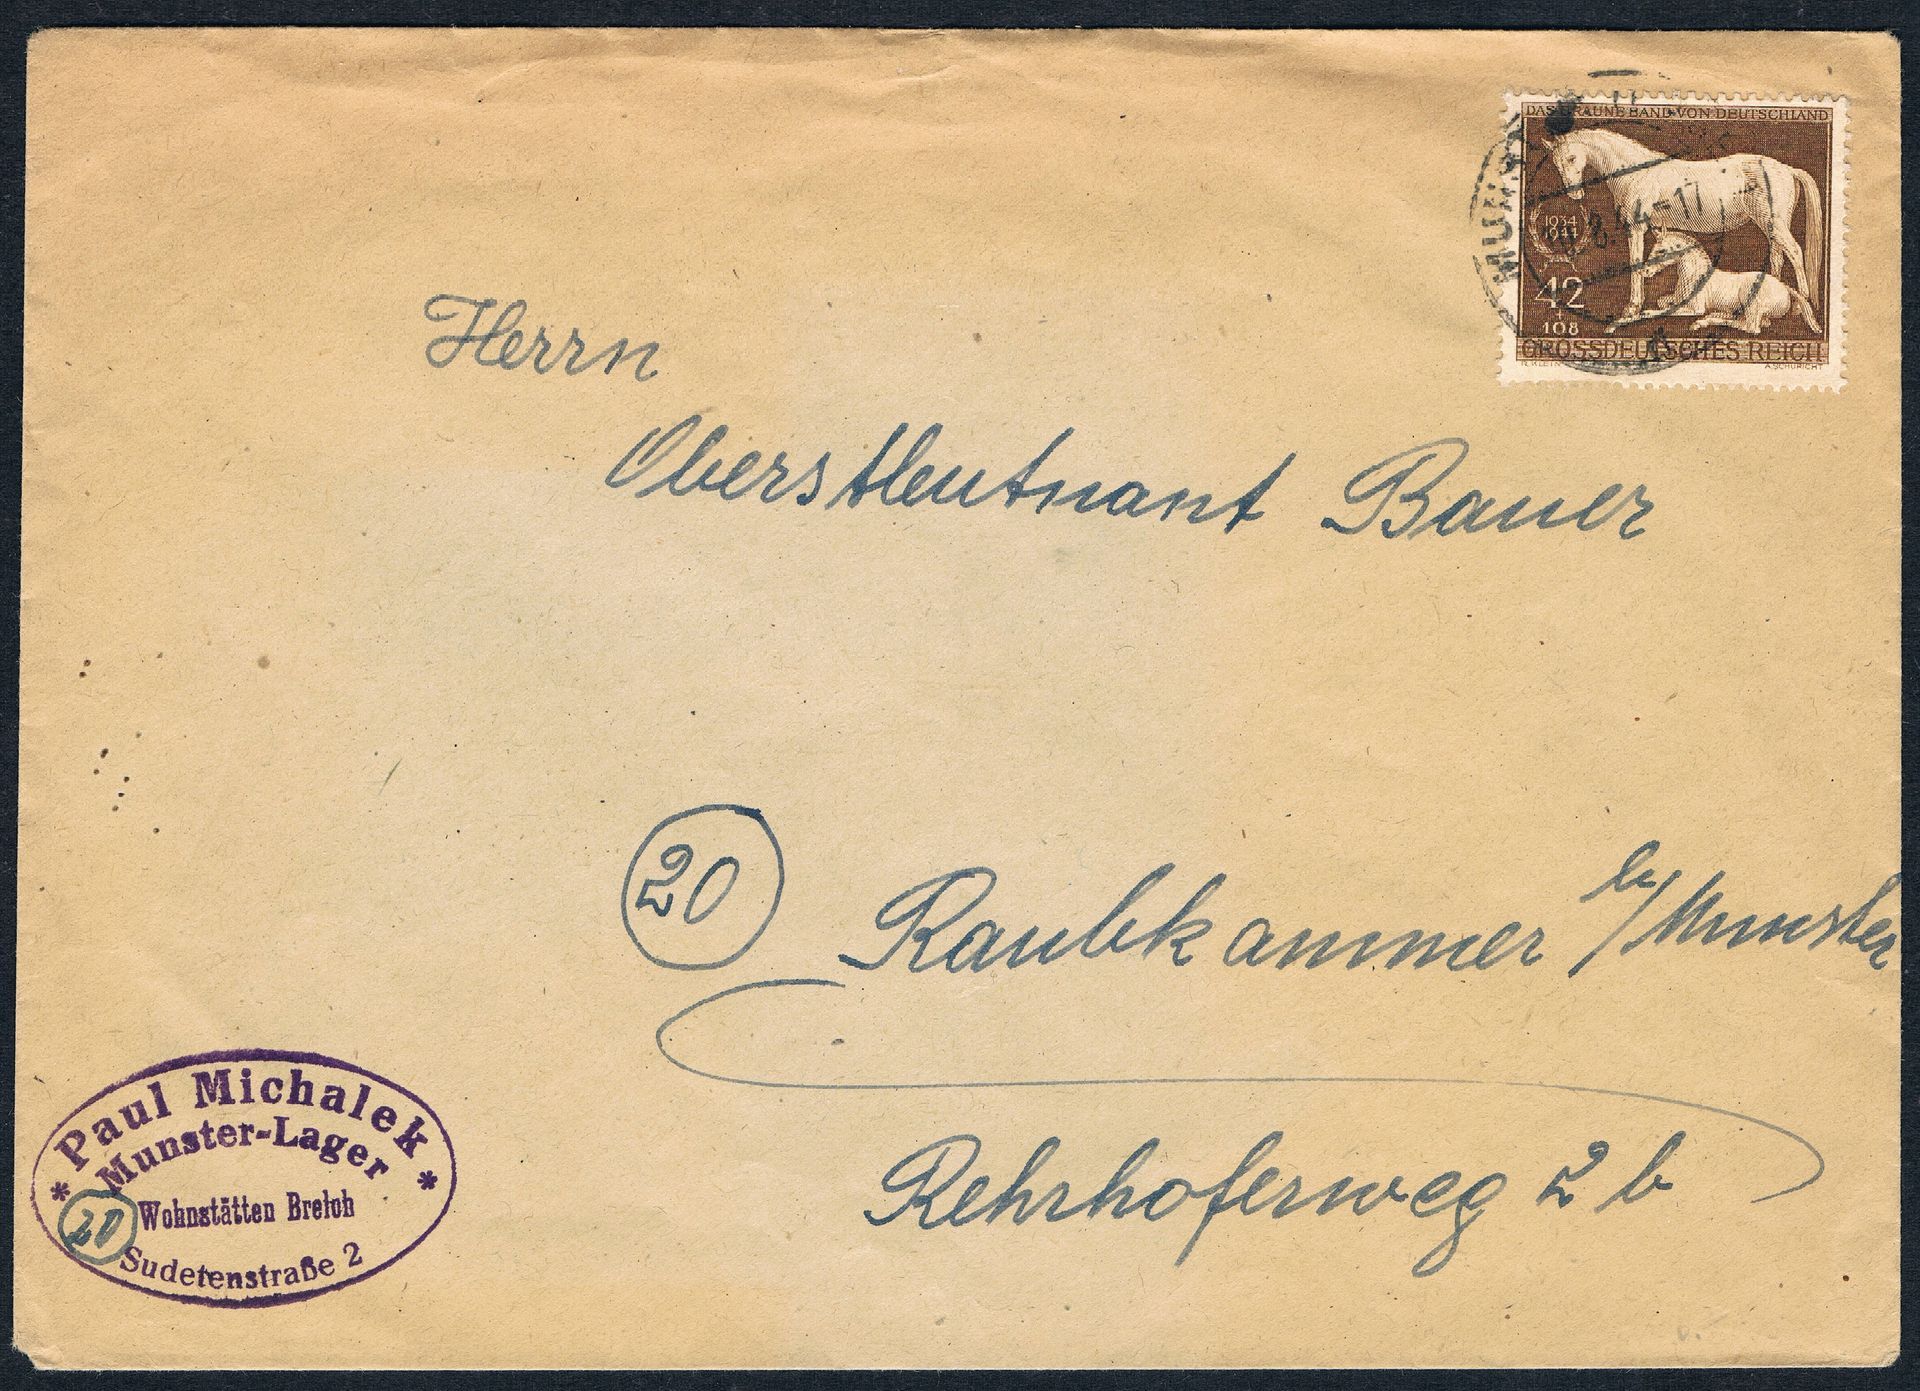 DAS BRAUNE BAND VON DEUTSCHLAND
1934
1944
8.44-17
42
+
108
GROSSDEUTSCHES REICH
A. SCHURICHT
Herrn
Oberstleutnant Bauer
20 Raubkammer b/Munster
Rehrhoferweg 2 b
* Paul Michalek *
Munster-Lager
20 Wohnstätten Breloh
Sudetenstraße 2